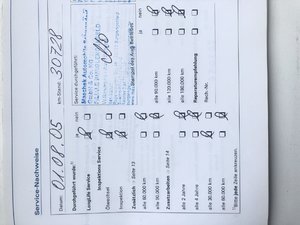 Service-Nachweise
Datum: 01.08.05 km-Stand: 30728
Durchgeführt:¹⁾ ja nein
LongLife Service
Inspektions Service
Ölwechsel
Inspektion
Zusätzlich > Seite 13
alle 60.000 km
alle 90.000 km
Zusatzarbeiten > Seite 14
alle 2 Jahre
alle 4 Jahre
alle 30.000 km
alle 60.000 km
¹⁾ Bitte jede Zeile ankreuzen.
Service durchgeführt:
Stempel des Audi Betriebes
ja nein
alle 90.000 km
alle 120.000 km
alle 180.000 km
Reparaturempfehlung
Rech.-Nr.